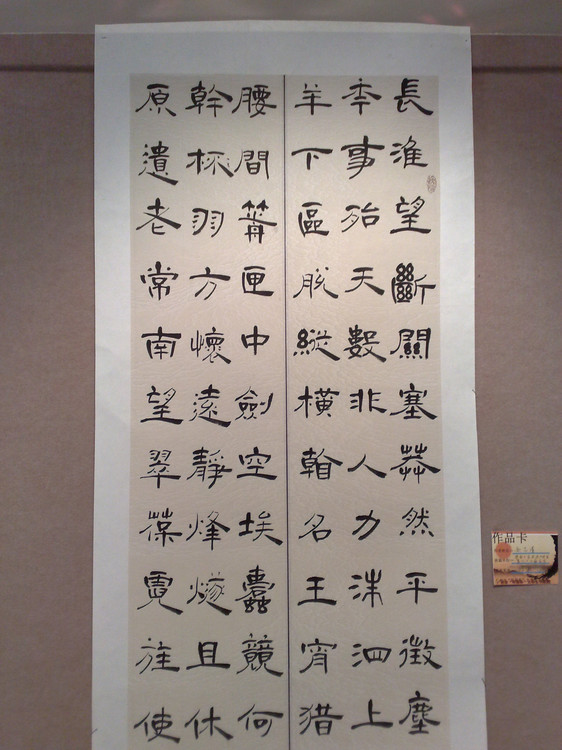 長淮望斷關塞莽然平徵塵
年事殆天數非人力洙泗上
羊下區脫縱橫看名王宵猎
腰間箭匣中劍空埃蠹競何
幹杯羽方懷遠靜烽燧且休
原遺老常南望翠葆霓旌使
作品卡